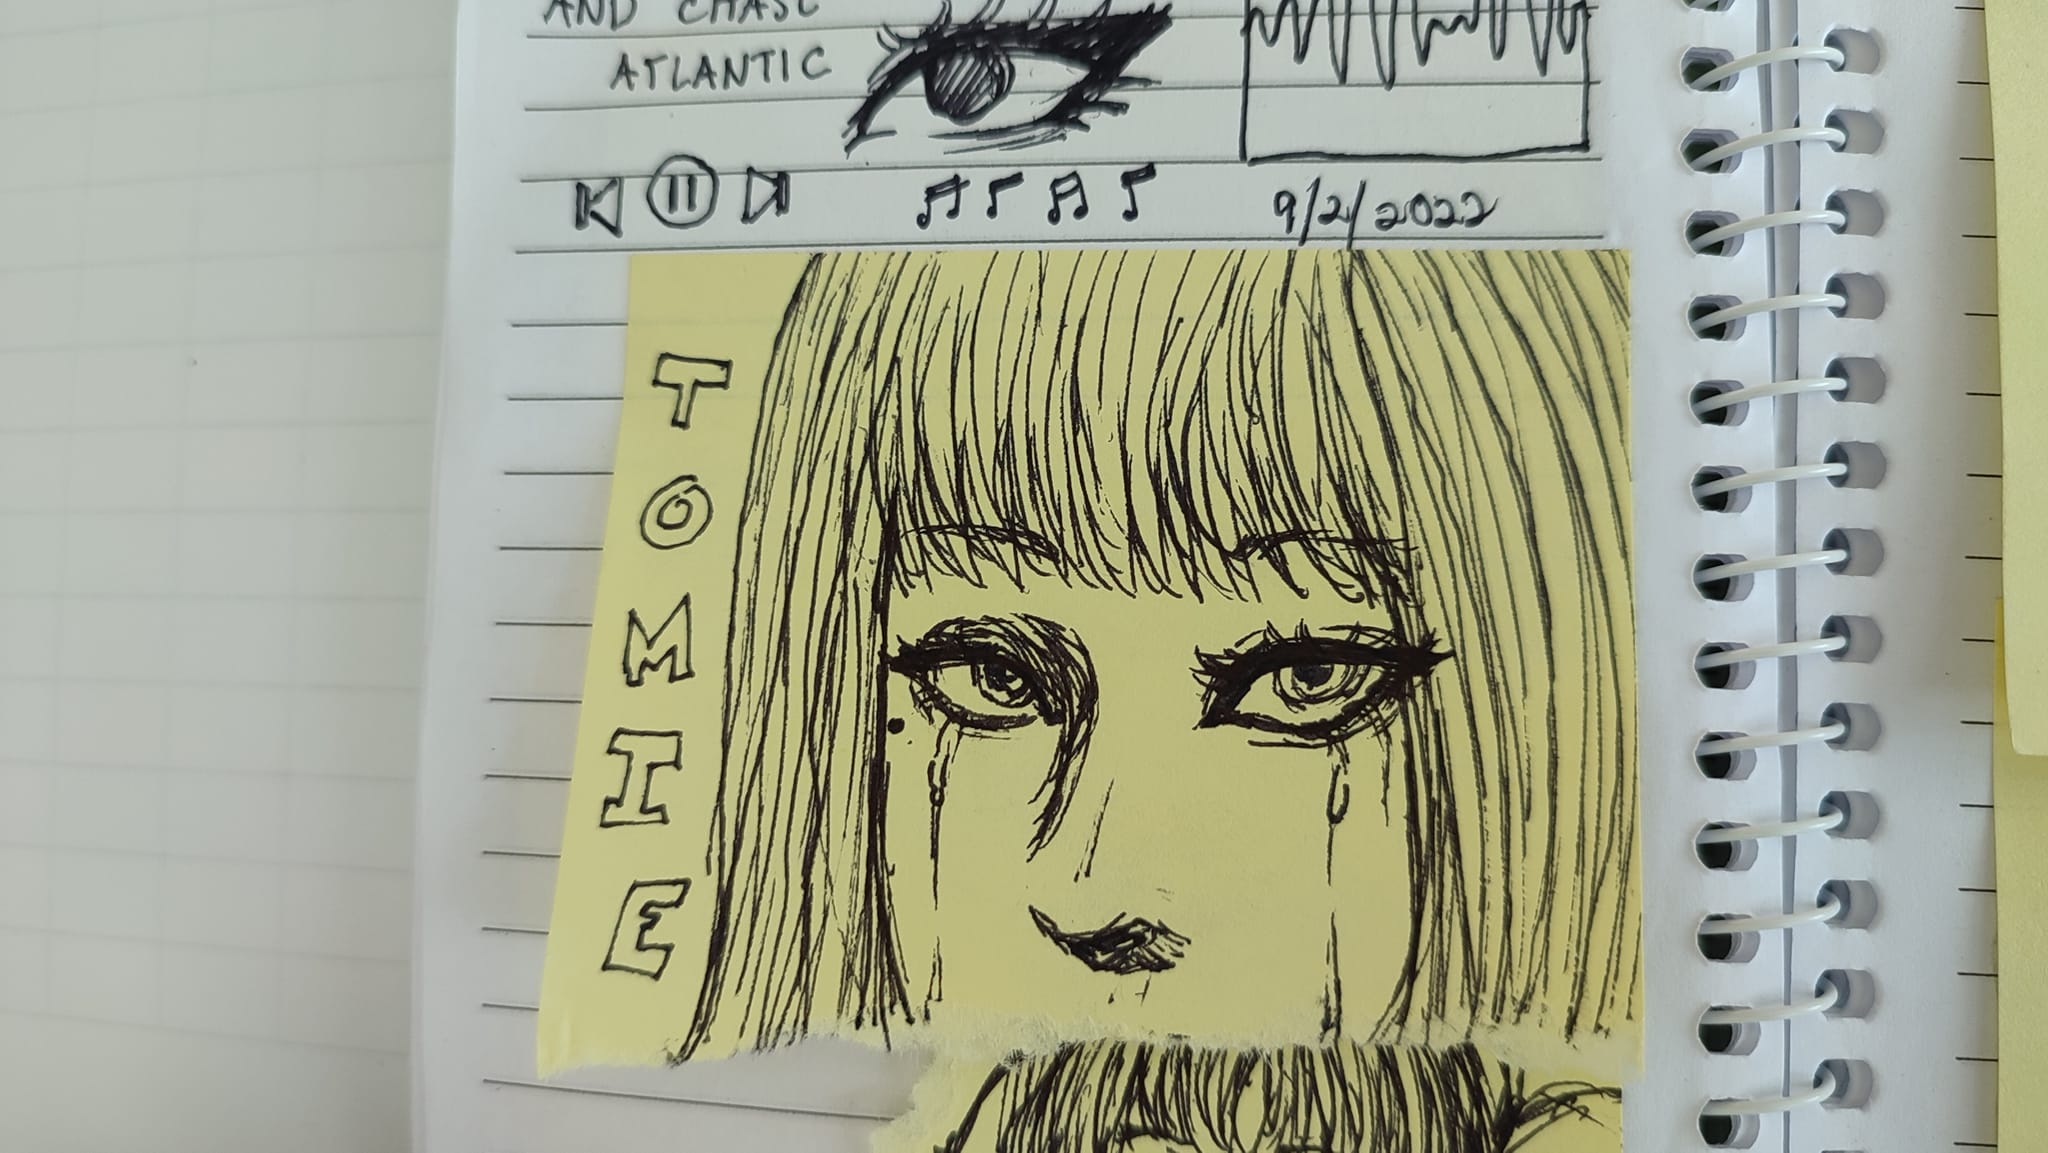 AND CHASE
ATLANTIC
9/2/2022
TOMIE